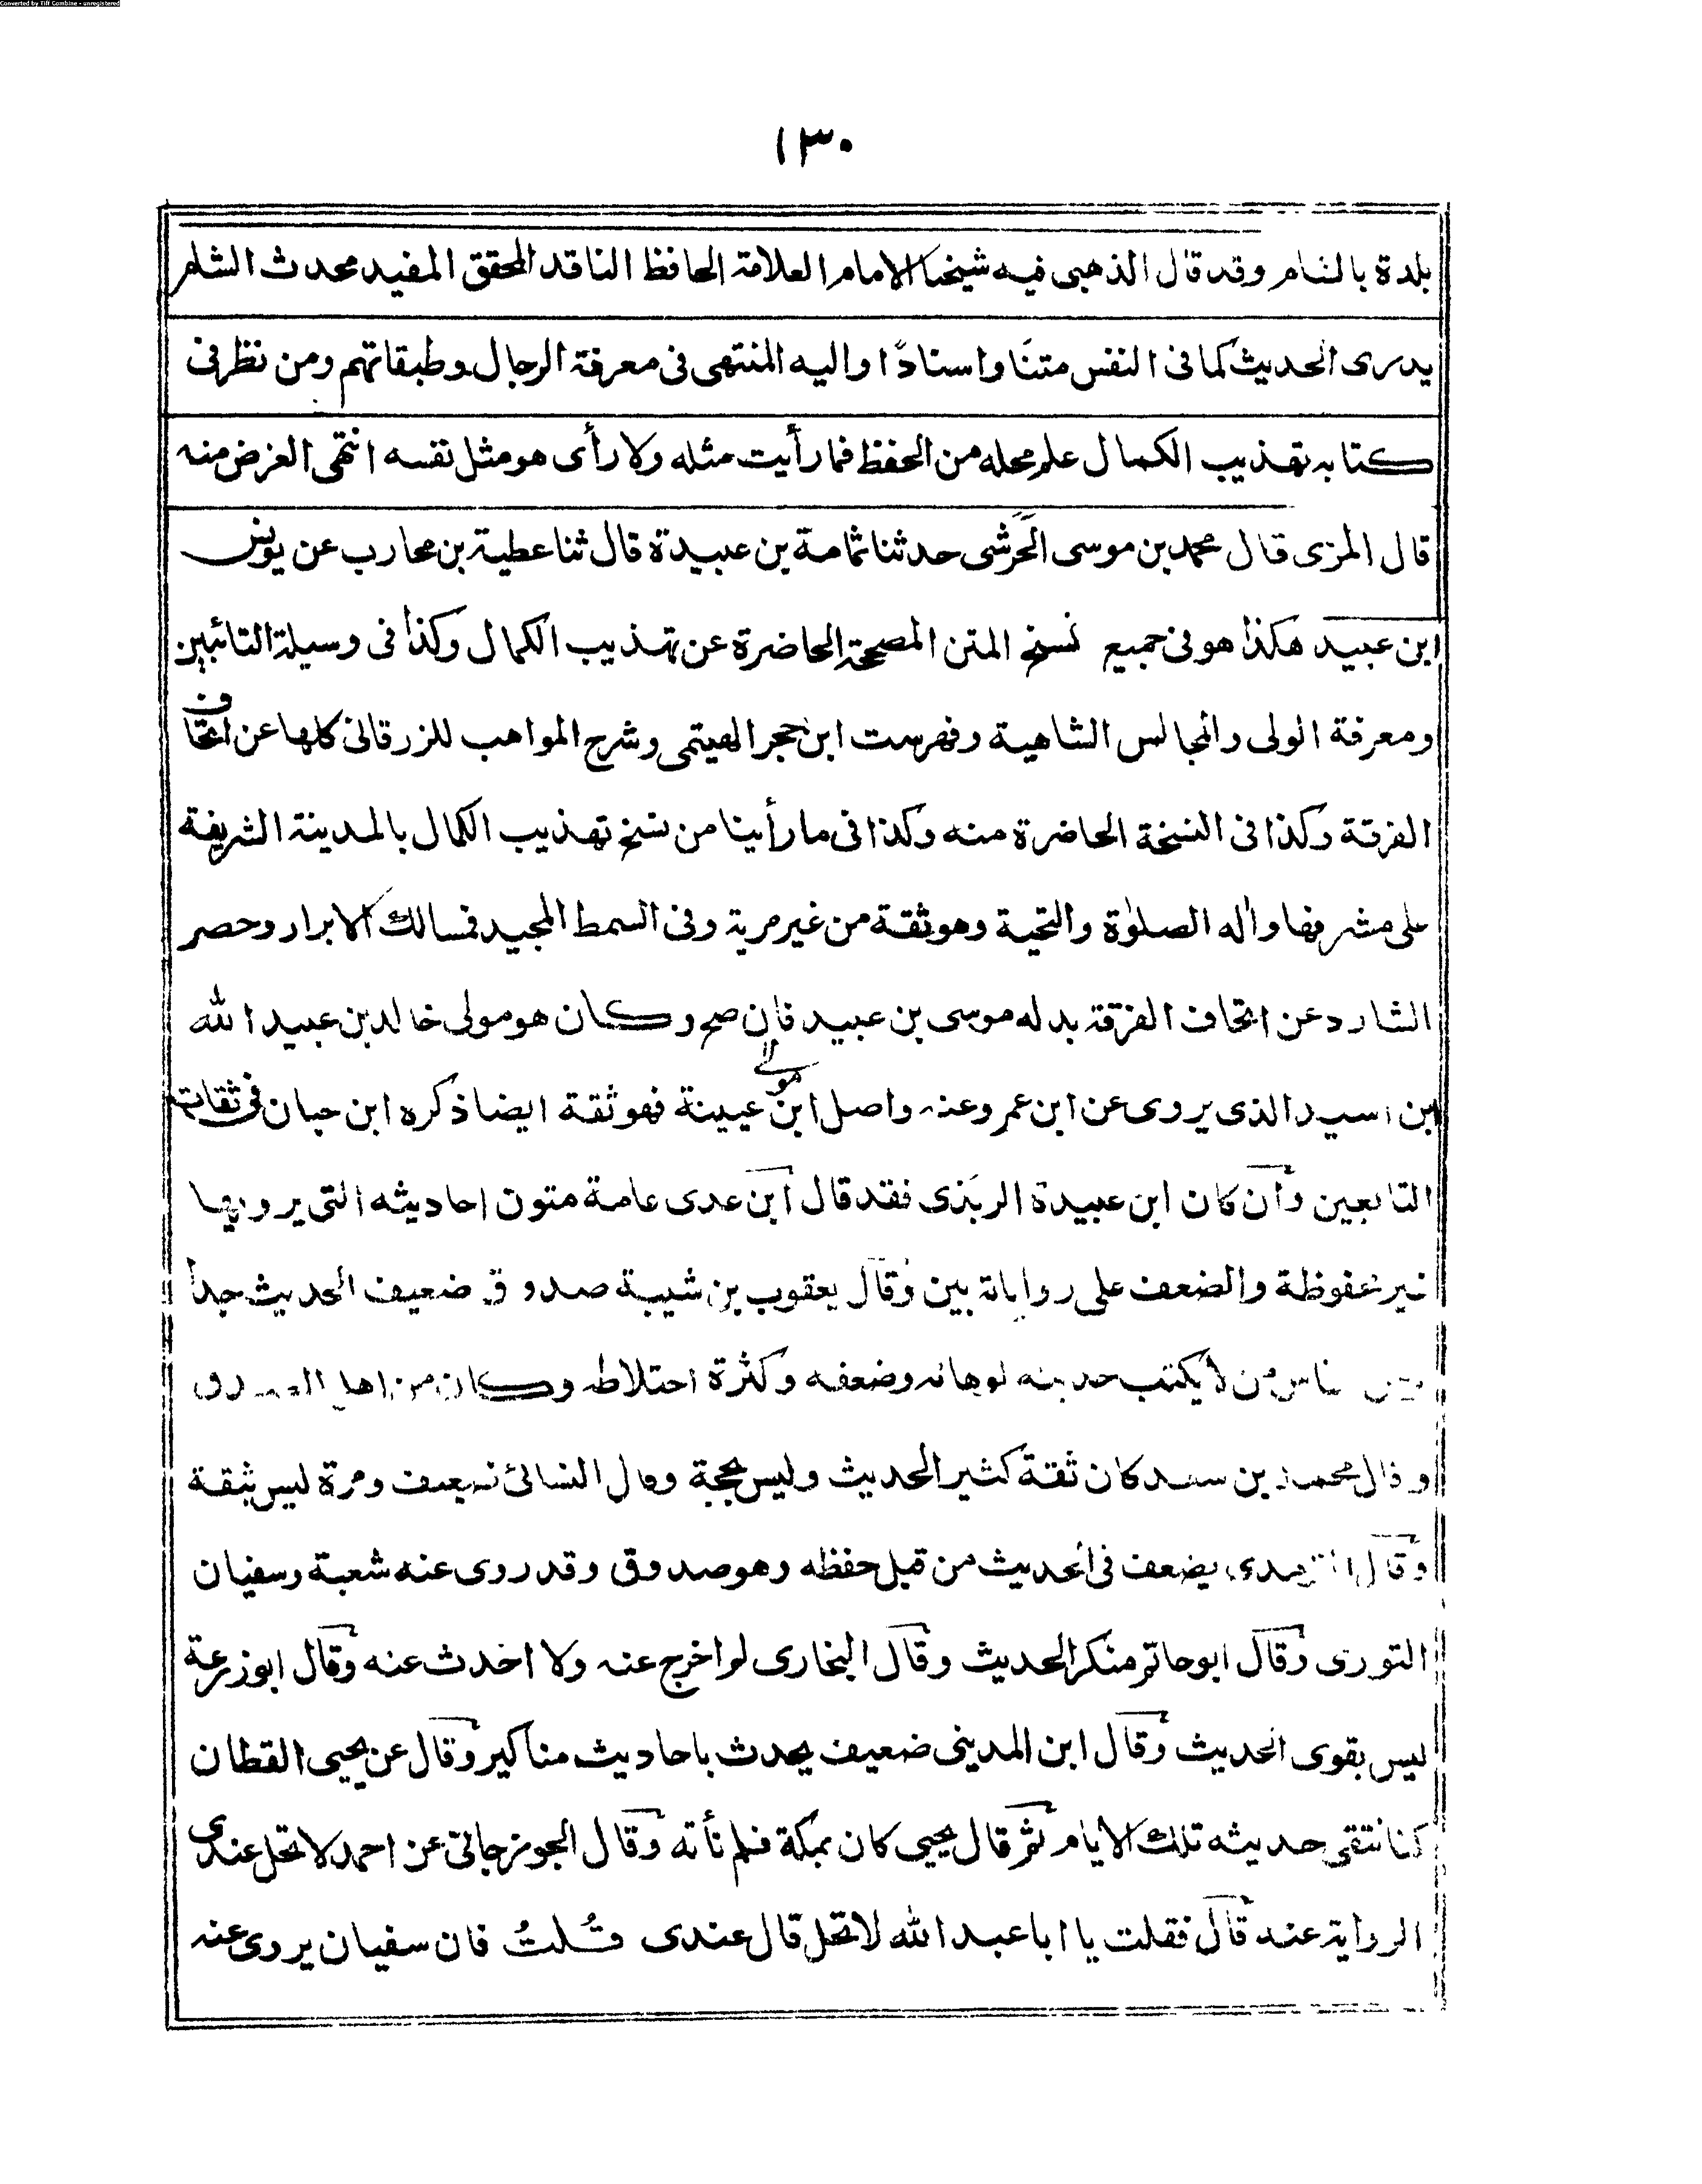 Converted by Tiff Combine - unregistered
١٣٠
بلدة بالشام وقد قال الذهبى فيه شيخنا الامام العلامة الحافظ الناقد المحقق المفيد محدث الشام
يدرى الحديث كما فى النفس متنًا واسنادًا واليه المنتهى فى معرفة الرجال وطبقاتهم ومن نظر فى
كتابه تهذيب الكمال علم محله من الحفظ فما رأيت مثله ولا رأى هو مثل نفسه انتهى الغرض منه
قال المزى قال محمد بن موسى الحَرَشى حدثنا ثمامة بن عبيدة قال ثنا عطية بن محارب عن يونس
ابن عبيد هكذا هو فى جميع نسخ المتن المصححة الحاضرة عن تهذيب الكمال وكذا فى وسيلة التائبين
ومعرفة الولى والمجالس الشاهية وفهرست ابن حجر الهيتمى وشرح المواهب للزرقانى كلها عن اتحاف
الفرقة وكذا فى النسخة الحاضرة منه وكذا فى ما رأينا من نسخ تهذيب الكمال بالمدينة الشريفة
على مشرفها واله الصلوٰة والتحية وهو ثقة من غير مرية وفى السمط المجيد فمسالك الابرار وحصر
الشارد عن اتحاف الفرقة بدله موسى بن عبيد فان صح وكان هو مولى خالد بن عبيد الله
ابن اسيد الذى يروى عن ابن عمر وعنه واصل مولے ابن عيينة فهو ثقة ايضا ذكره ابن حبان فى ثقات
التابعين وأن كان ابن عبيدة الربَذى فقد قال ابن عدى عامة متون احاديثه التى يرويها
غير محفوظة والضعف على رواياته بين وقال يعقوب بن شيبة صدوق ضعيف الحديث جدا
من لا يكتب حديثه لوهائه وضعفه وكثرة اختلاطه وكان من اهل الصدق
وقال محمد بن سعد كان ثقة كثير الحديث وليس بحجة وقال النسائى ضعيف ومرة ليس بثقة
وقال الترمذى يضعف فى الحديث من قبل حفظه وهو صدوق وقد روى عنه شعبة وسفيان
الثورى وقال ابو حاتم منكر الحديث وقال البخارى لم اخرج عنه ولا احدث عنه وقال ابو زرعة
ليس بقوى الحديث وقال ابن المدينى ضعيف يحدث باحاديث مناكير وقال عن يحيى القطان
كنا نتقى حديثه تلك الايام ثم قال يحيى كان بمكة فلم نأته وقال الجوزجانى عن احمد لا تحل عندى
الرواية عنه قال فقلت يا ابا عبد الله لا تحل قال عندى قُلتُ فان سفيان يروى عنه